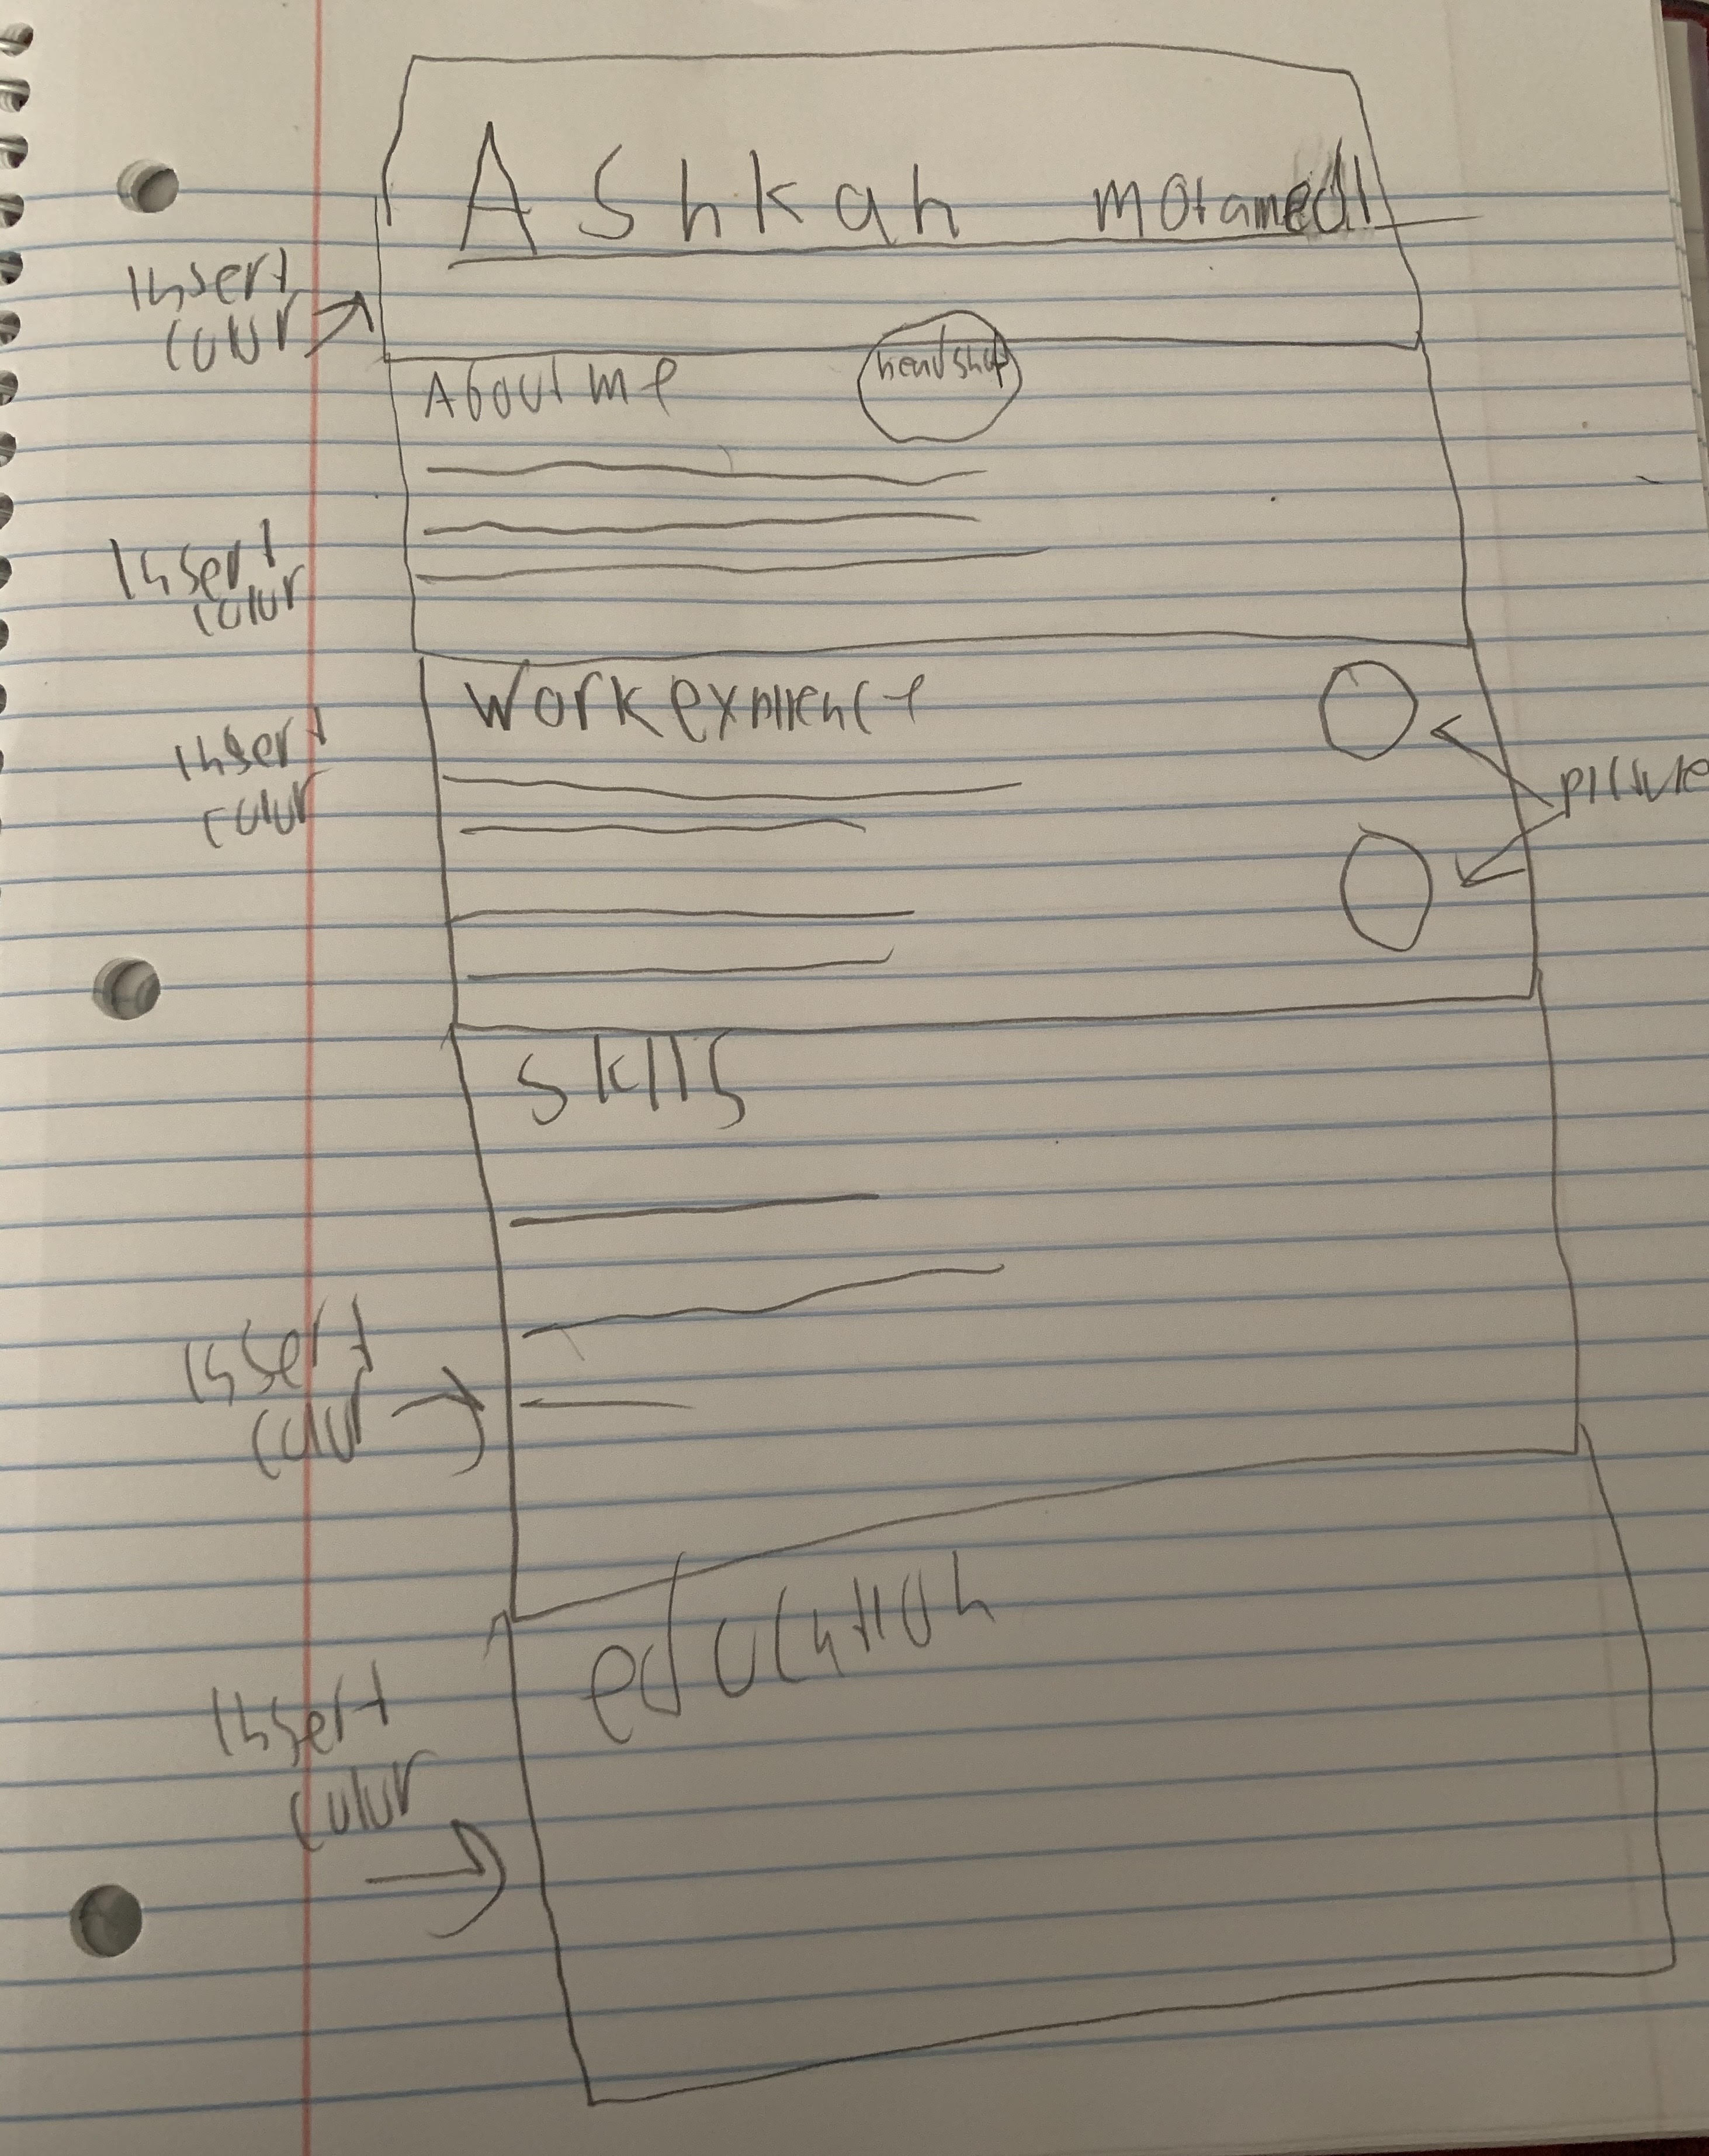 Ashkan Motamedi
Insert
color
About me
headshot
Insert
color
Work experience
Insert
color
picture
Skills
Insert
color
education
Insert
color